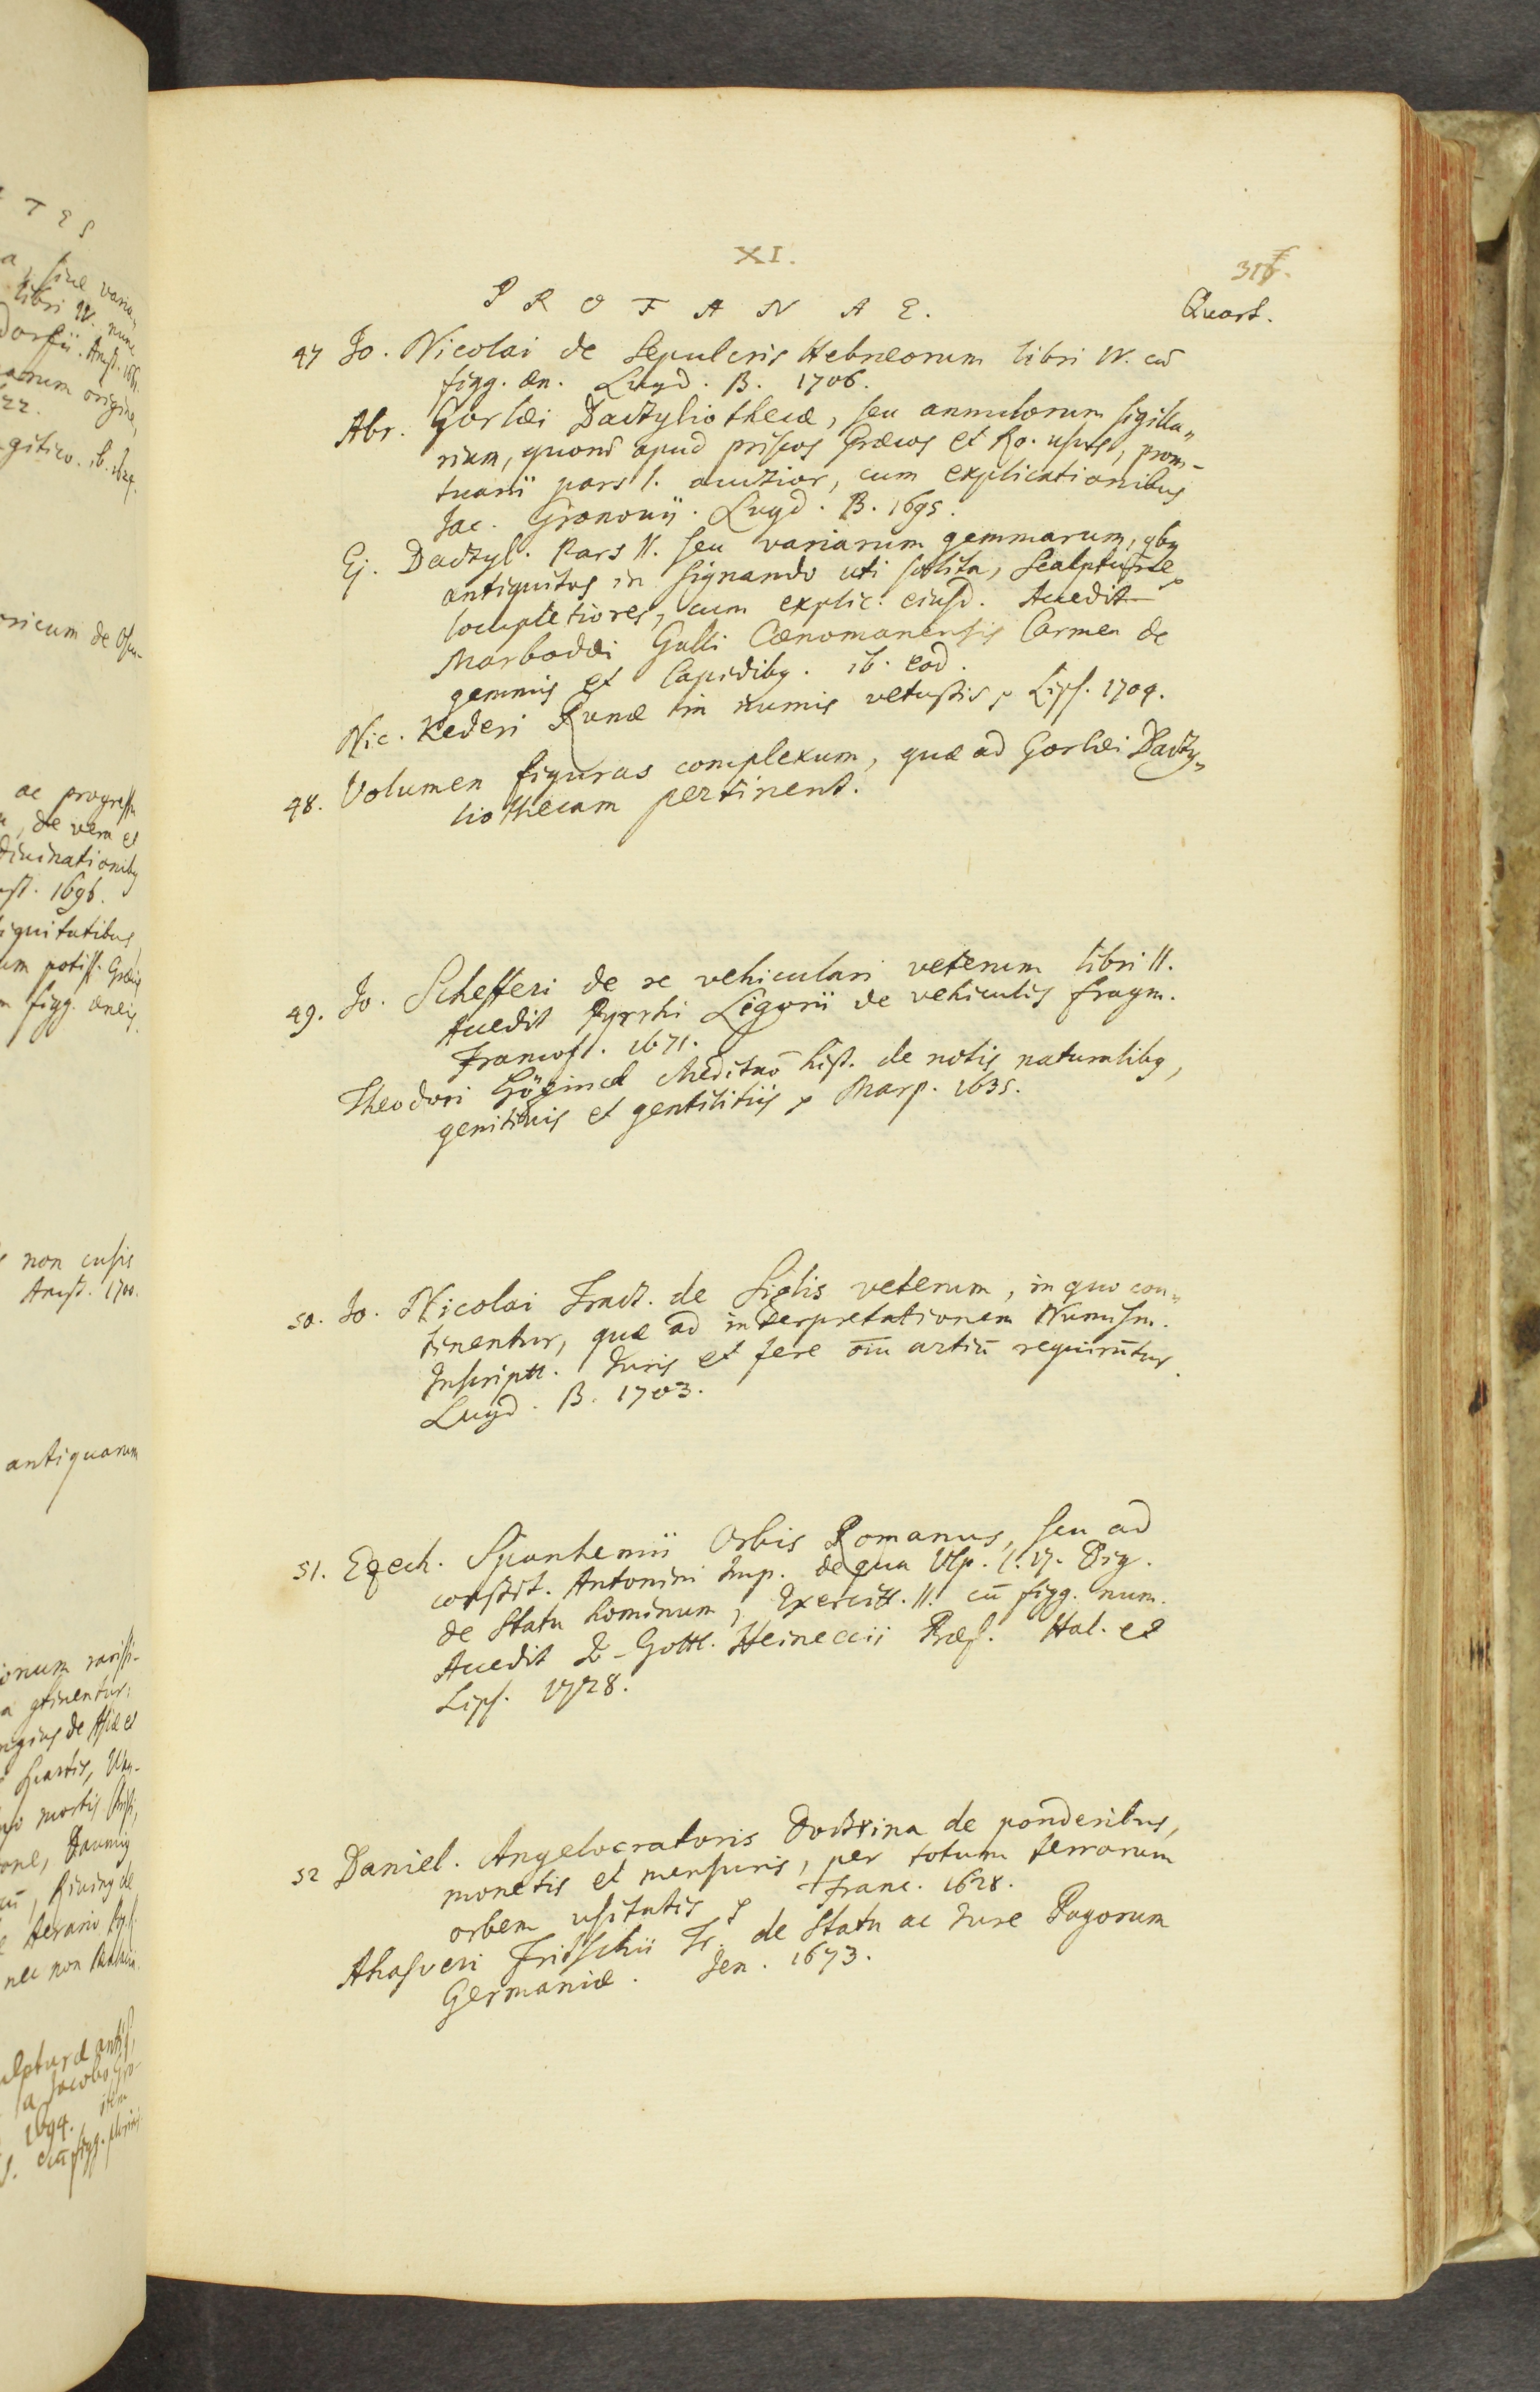 XI.
317.
PROFANAE.
Quart.
47 Jo. Nicolai de Sepulcris Hebræorum libri IV. cū
figg. æn. Lugd. B. 1706.
Abr. Gorlæi Dactyliothecæ, seu annulorum sigilla„
rium, quorū apud priscos Græcos et Ro. usus, prom-
tuarii pars I. auctior, cum explicationibus
Jac. Gronovij. Lugd. B. 1695.
Ej. Dactyl. Pars II. seu variarum gemmarum, qbq
antiquitas in signando uti solita, Scalpturæ
locupletiores, cum explic. eiusd. Accedit
Marbodæi Galli Cænomanensis Carmen de
gemmis et lapidibq. ib. eod.
Nic. Kederi Runæ in numis vetustis, Lips. 1704.
48. Volumen figuras complexum, quæ ad Gorlæi Dacty„
liothecam pertinent.
49. Jo. Schefferi de re vehiculari veterum libri II.
Accedit Pyrrhi Ligorii de vehiculis fragm.
Francof. 1671.
Theodori Meditaō hist. de notis naturalibq,
genitivis et gentilitiis, Marp. 1635.
50. Jo. Nicolai Tract. de Siglis veterum, in quo con„
tinentur, quæ ad interpretationem Numism.
Inscriptt. Juris et fere oīu artiū requirūtur.
Lugd. B. 1703.
51. Ezech. Spanhemii Orbis Romanus, seu ad
constit. Antonini Imp. de qua Ulp. l. 17. Dig.
de Statu hominum, Exercitt. II. cū figg. num.
Accedit Jo-Gottl. Heineccii Præf. Hal. et
Lips. 1728.
52 Daniel. Angelocratoris Doctrina de ponderibus,
monetis et mensuris, per totum terrarum
orbem usitatis, Franc. 1628.
Ahasveri Fritschii Tr. de Statu ac Jure Pagorum
Germaniæ. Jen. 1673.